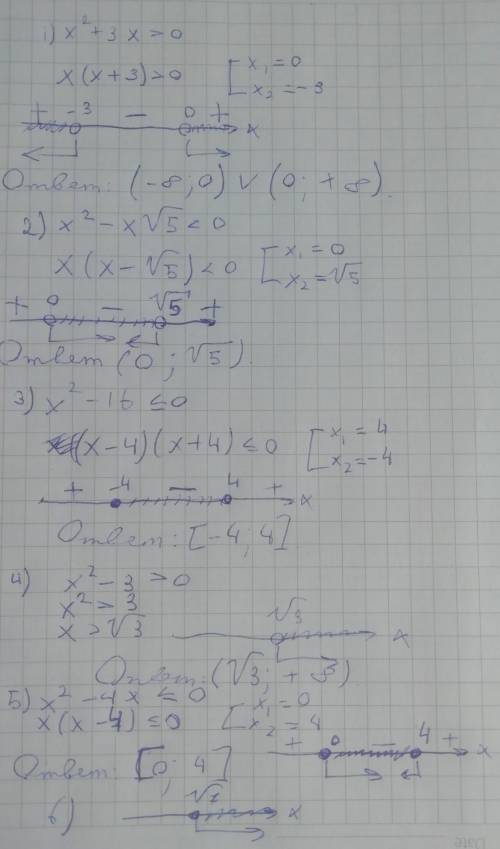 1) x² + 3x > 0
x(x+3) > 0 [ x₁ = 0
x₂ = -3
+ -3 — 0 + x
Ответ: (-∞; 0) ∨ (0; +∞).
2) x² - x√5 < 0
x(x - √5) < 0 [ x₁ = 0
x₂ = √5
+ 0 — √5 +
Ответ (0; √5).
3) x² - 16 ≤ 0
(x-4)(x+4) ≤ 0 [ x₁ = 4
x₂ = -4
+ -4 — 4 + x
Ответ: [-4; 4]
4) x² - 3 > 0
x² > 3
x > √3
√3 x
Ответ: (√3; +∞)
5) x² - 4x ≤ 0
x(x-4) ≤ 0 [ x₁ = 0
x₂ = 4
+ 0 — 4 + x
Ответ: [0; 4]
6) x
Date